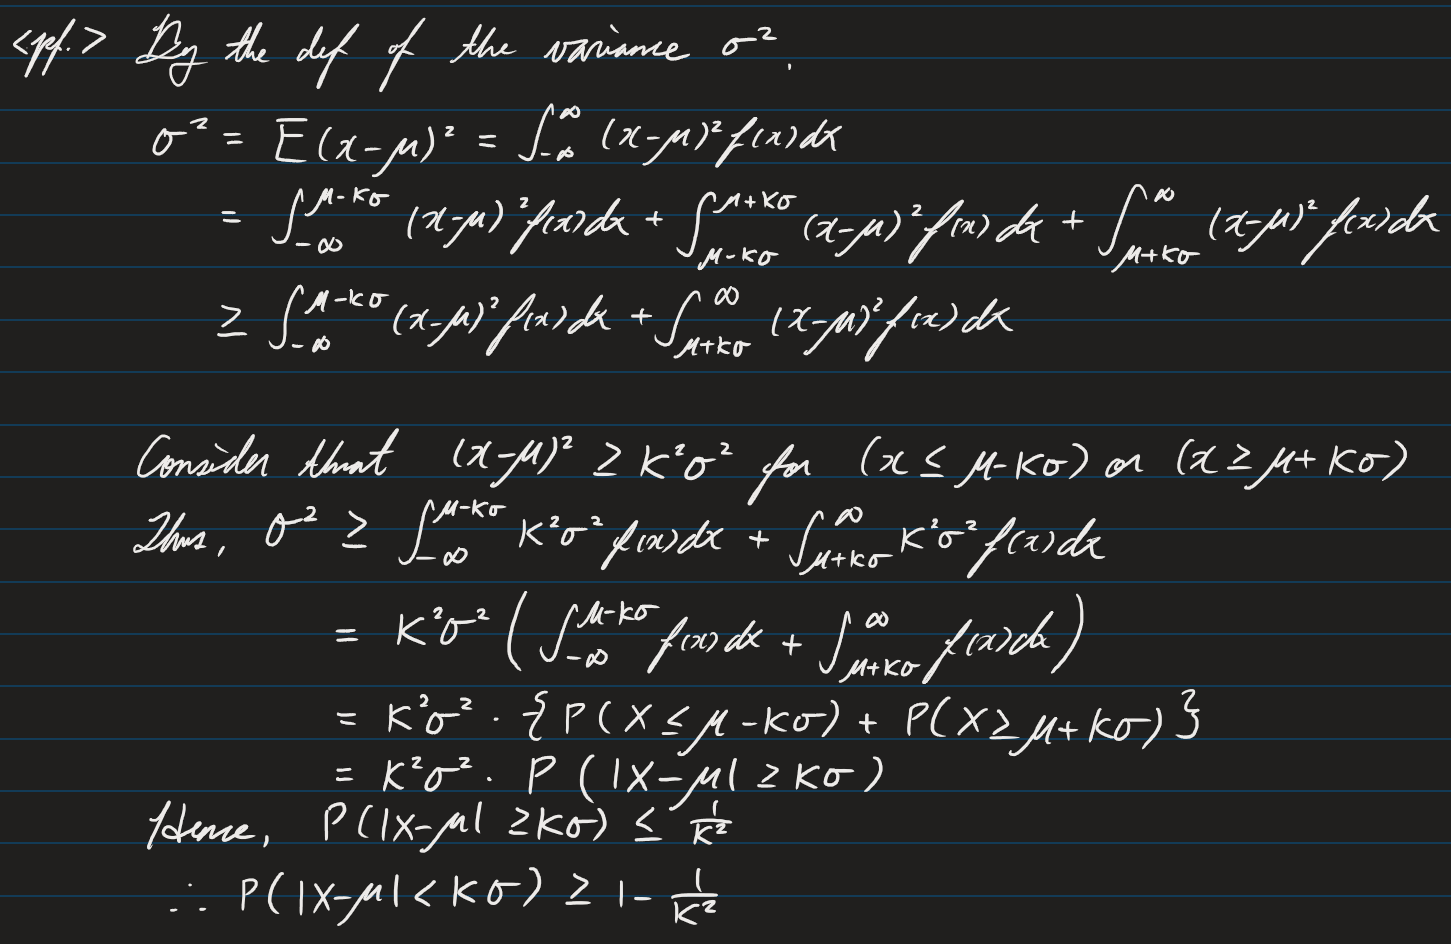 <pf.> By the def of the variance σ².
σ² = E(x-μ)² = ∫_{-∞}^{∞} (x-μ)² f(x)dx
= ∫_{-∞}^{μ-kσ} (x-μ)² f(x)dx + ∫_{μ-kσ}^{μ+kσ} (x-μ)² f(x)dx + ∫_{μ+kσ}^{∞} (x-μ)² f(x)dx
≥ ∫_{-∞}^{μ-kσ} (x-μ)² f(x)dx + ∫_{μ+kσ}^{∞} (x-μ)² f(x)dx
Consider that (x-μ)² ≥ k²σ² for (x ≤ μ-kσ) or (x ≥ μ+kσ)
Thus, σ² ≥ ∫_{-∞}^{μ-kσ} k²σ² f(x)dx + ∫_{μ+kσ}^{∞} k²σ² f(x)dx
= k²σ² ( ∫_{-∞}^{μ-kσ} f(x)dx + ∫_{μ+kσ}^{∞} f(x)dx )
= k²σ² · { P(X ≤ μ-kσ) + P(X ≥ μ+kσ) }
= k²σ² · P(|X-μ| ≥ kσ)
Hence, P(|X-μ| ≥ kσ) ≤ 1/k²
∴ P(|X-μ| < kσ) ≥ 1 - 1/k²